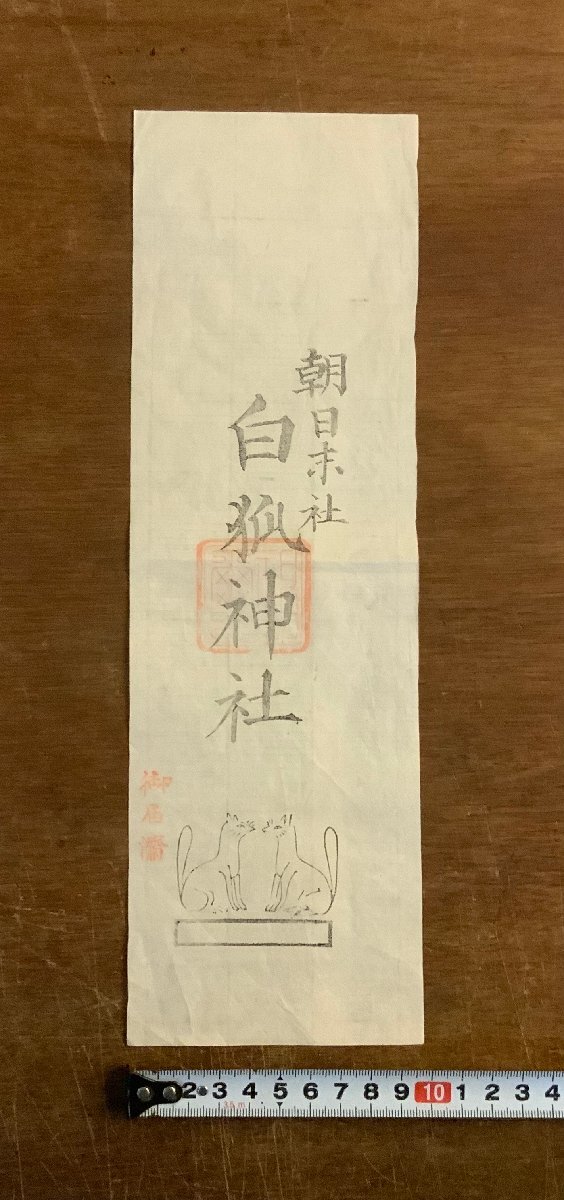 朝日末社
白狐神社
御届済
2 3 4 5 6 7 8 9 10 1 2 3 4
3.5m